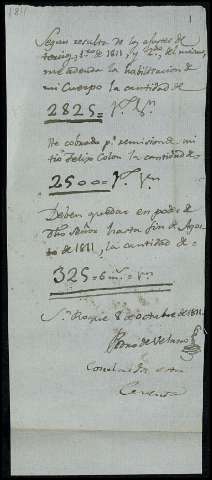 1811
1
Segun resulta de los ajustes de
tercio, 1.ro de 1811, y 2.do, del mismo,
me adeuda la habilitacion de
mi Cuerpo la cantidad de
2825=
He cobrado p.r remision de mi
tio Felix Colon la cantidad de=
2500=
Deben quedar en poder de
Dho Señor hasta fin de Agos
to de 1811, la cantidad de=
325=6
S.n Roque 8 de octubre de 1811
Pedro de Velasco
Cuenta